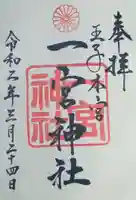 奉拝
王子本宮
一宮神社
令和二年三月二十四日
一宮
神社